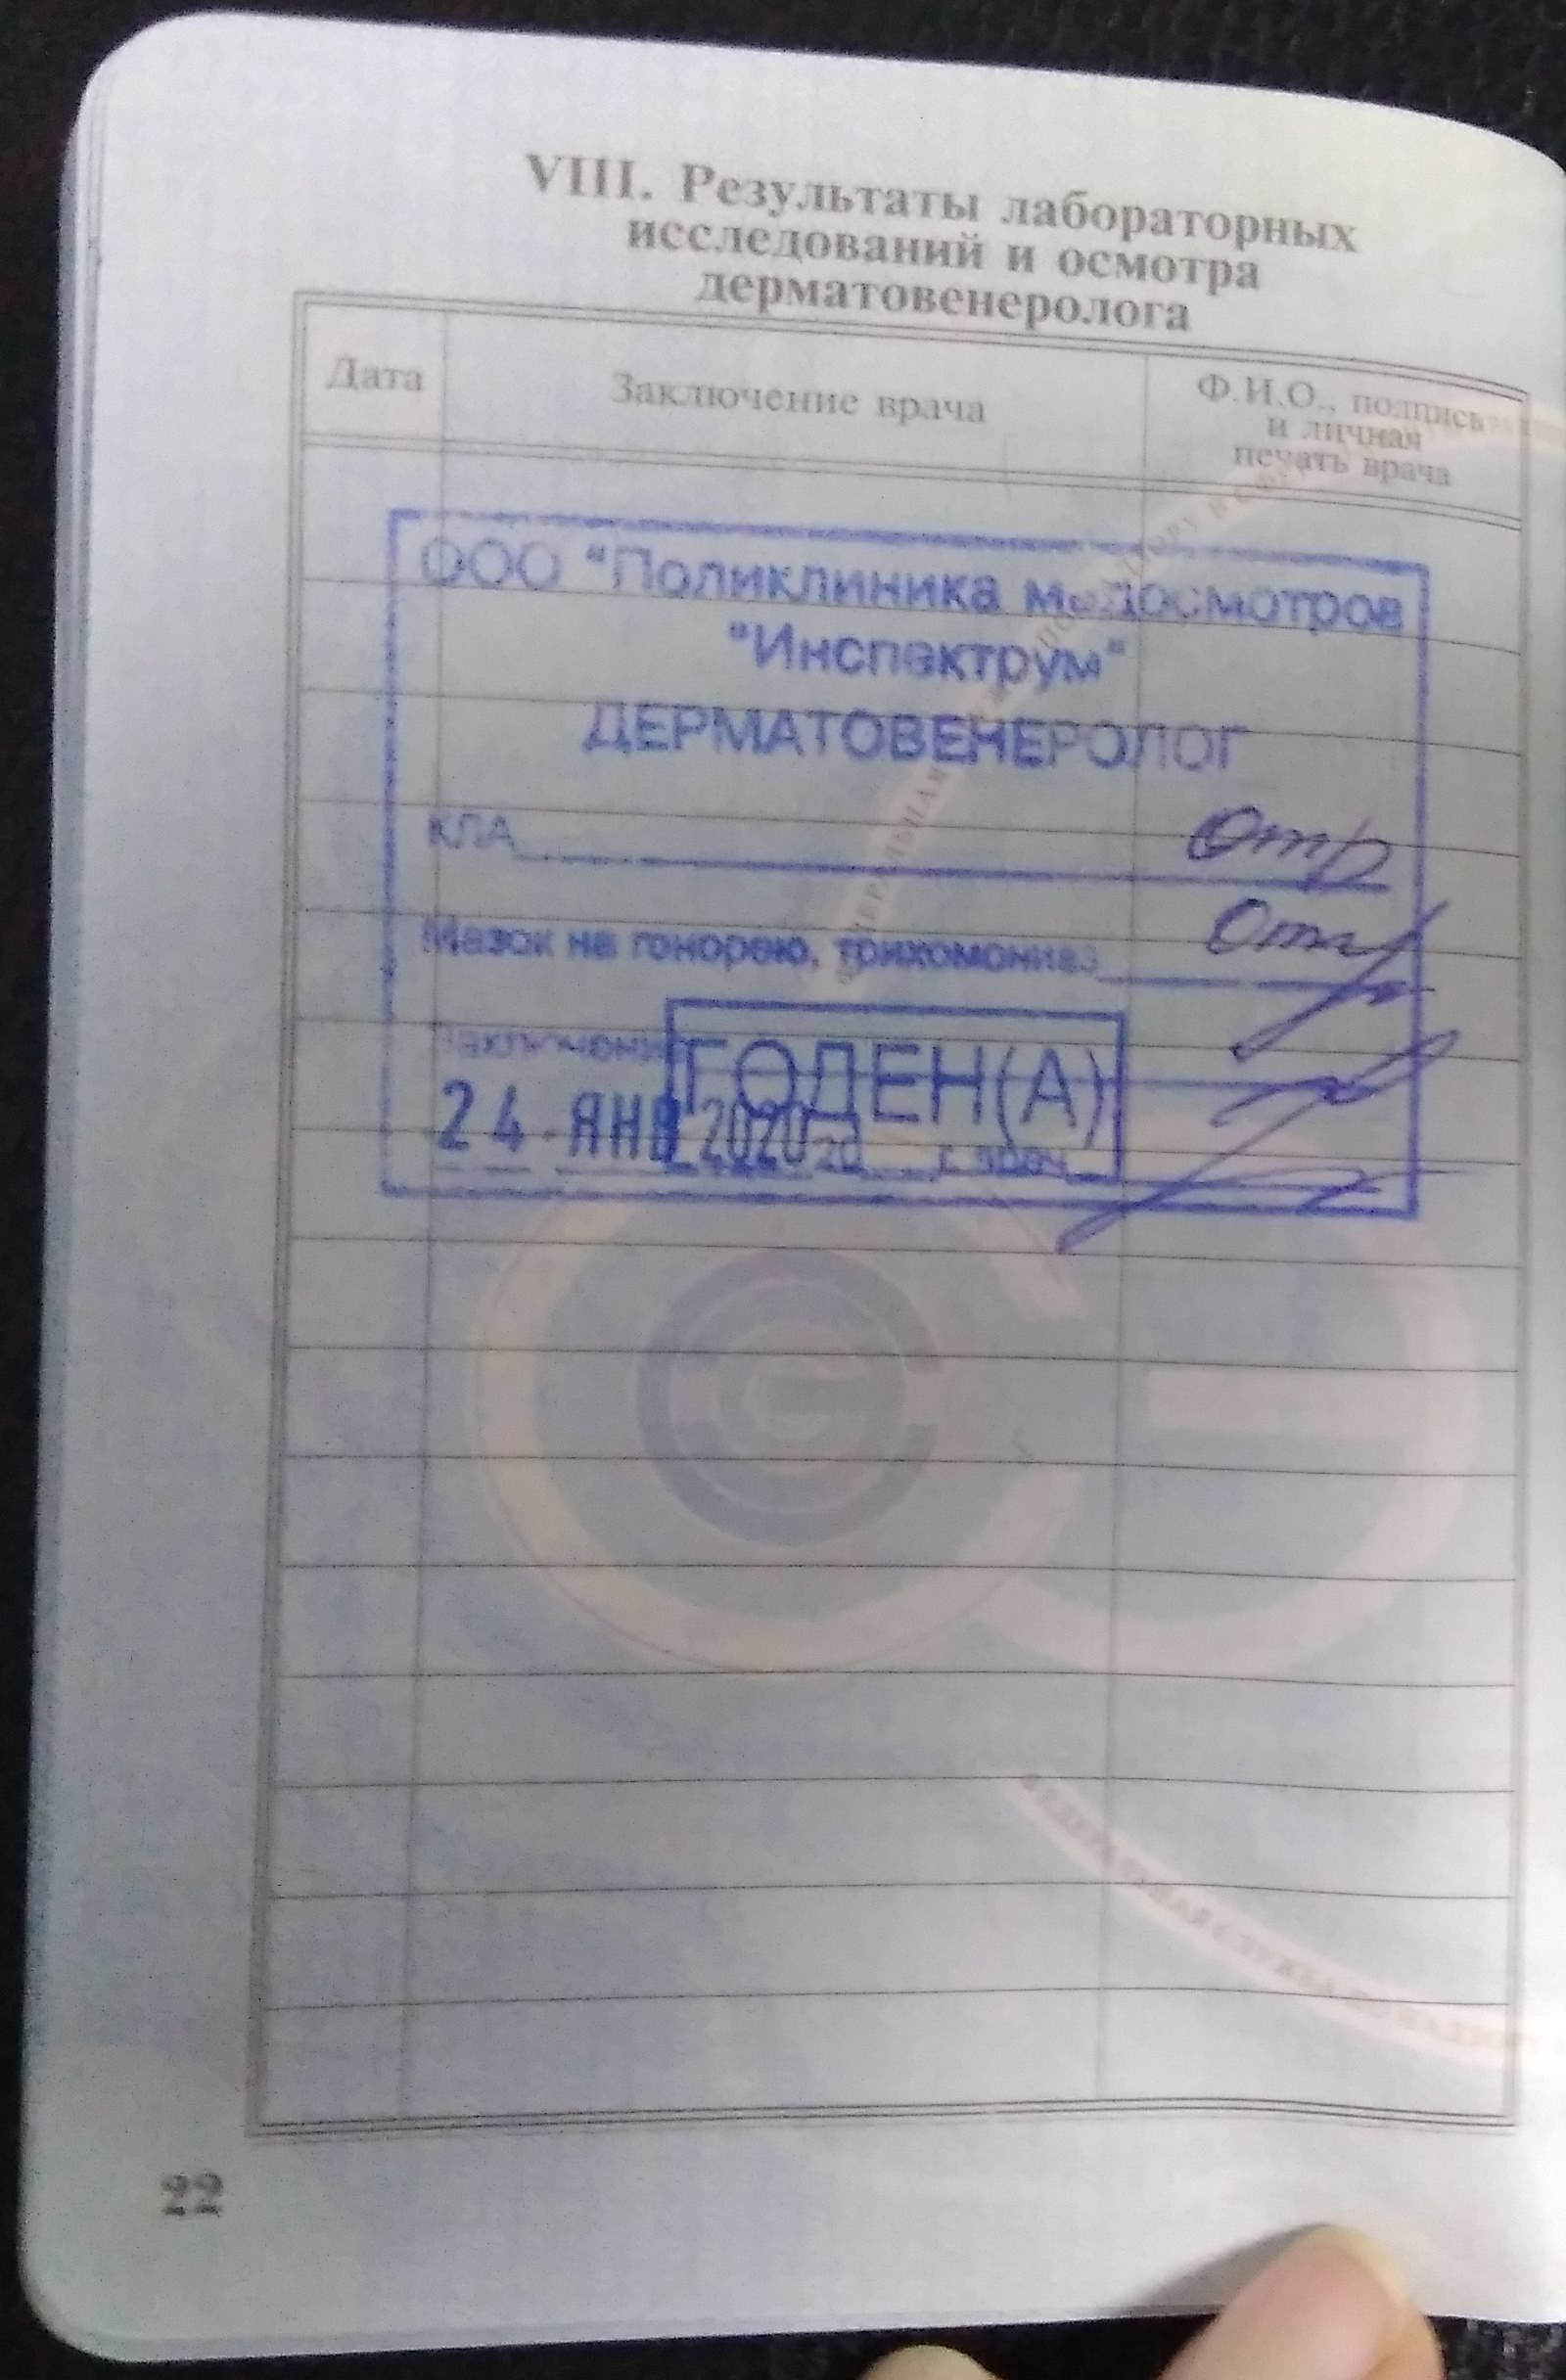 VIII. Результаты лабораторных
исследований и осмотра
дерматовенеролога
Дата
Заключение врача
Ф.И.О., подпись
и личная
печать врача
ООО "Поликлиника медосмотров
"Инспектрум"
ДЕРМАТОВЕНЕРОЛОГ
КЛА отр
Мазок на гонорею, трихомониаз отр
Заключение ГОДЕН(А)
24 ЯНВ 2020 20 г. врач
ФЕДЕРАЛЬНАЯ СЛУЖБА ПО НАДЗОРУ
22